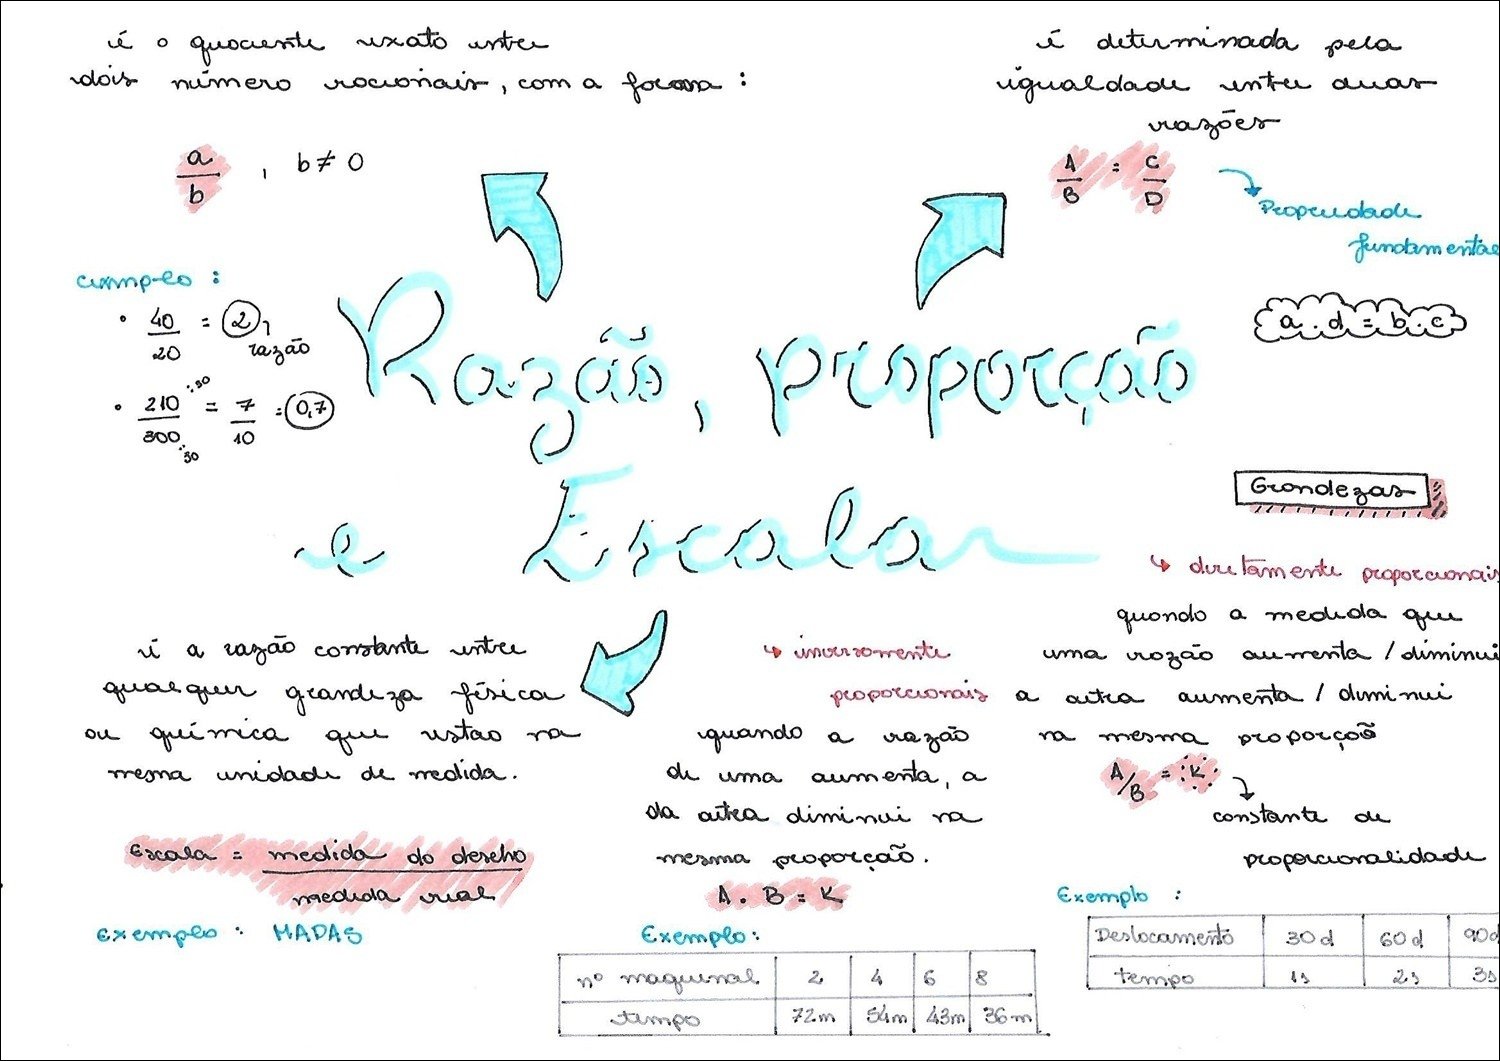 é o quociente exato entre
dois número racionais, com a forma :
a/b , b ≠ 0
exemplo :
• 40/20 = 2 razão
• 210:30/300:30 = 7/10 = 0,7
é determinada pela
igualdade entre duas
razões
A/B = C/D
Propriedade
fundamental
a . d = b . c
Razão, proporção
e Escala
é a razão constante entre
qualquer grandeza física
ou química que estão na
mesma unidade de medida.
Escala = medida do desenho
medida real
exemplo : MAPAS
Grandezas
diretamente proporcionais
quando a medida que
uma razão aumenta / diminui
a outra aumenta / diminui
na mesma proporção
A/B = K
constante de
proporcionalidade
Exemplo :
Deslocamento 30d 60d 90d
tempo 1s 2s 3s
inversamente
proporcionais
quando a razão
de uma aumenta, a
da outra diminui na
mesma proporção.
A . B = K
Exemplo:
nº maquinal 2 4 6 8
tempo 72m 54m 43m 36m